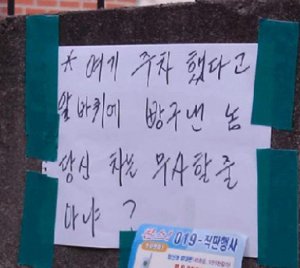 * 여기 주차 했다고
앞바퀴에 빵구낸 놈
당신 차는 무사할 줄
아냐 ?
019-직판행사